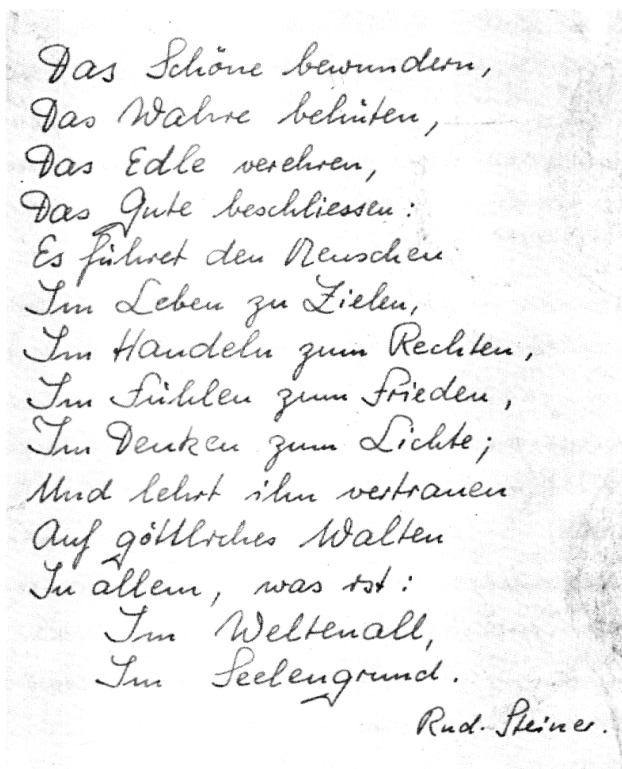 Das Schöne bewundern,
Das Wahre behüten,
Das Edle verehren,
Das Gute beschliessen:
Es führet den Menschen
Im Leben zu Zielen,
Im Handeln zum Rechten,
Im Fühlen zum Frieden,
Im Denken zum Lichte;
Und lehrt ihn vertrauen
Auf göttliches Walten
In allem, was ist:
Im Weltenall,
Im Seelengrund.
Rud. Steiner.